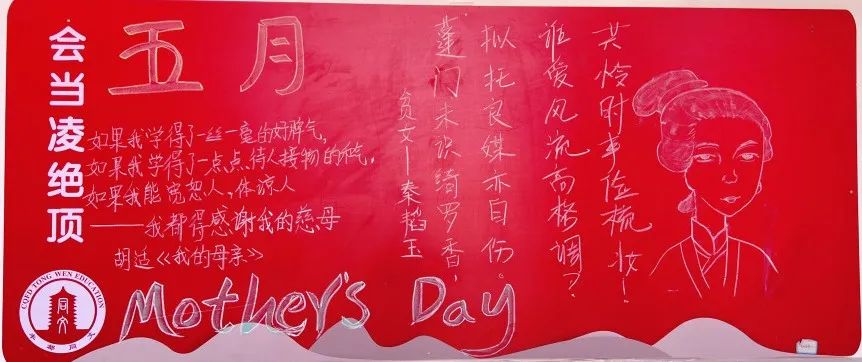 会当凌绝顶
五月
如果我学得了一丝一毫的好脾气,
如果我学得了一点点待人接物的和气,
如果我能宽恕人、体谅人
——我都得感谢我的慈母
胡适《我的母亲》
Mother's Day
贫女—秦韬玉
蓬门未识绮罗香,
拟托良媒亦自伤。
谁爱风流高格调?
共怜时事俭梳妆!
COED TONG WEN EDUCATION
同文